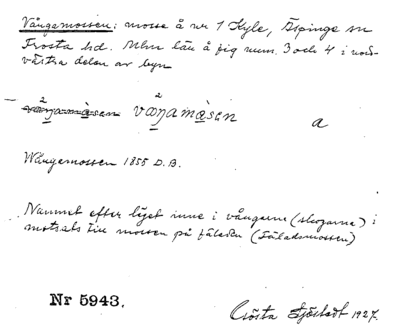 Vångamossen: mosse å nr 1 Kyle, Äspinge sn
Frosta hd. Mhn län å fig num. 3 och 4 i nord-
västra delen av byn
våŋamåsen våŋamåsen a
Wångemossen 1855 D.B.
Namnet efter läget inne i vångarne (skogarna) i
motsats till mossen på fäladen (Fäladsmossen)
Nr 5943.
Gösta Sjöstedt 1927.